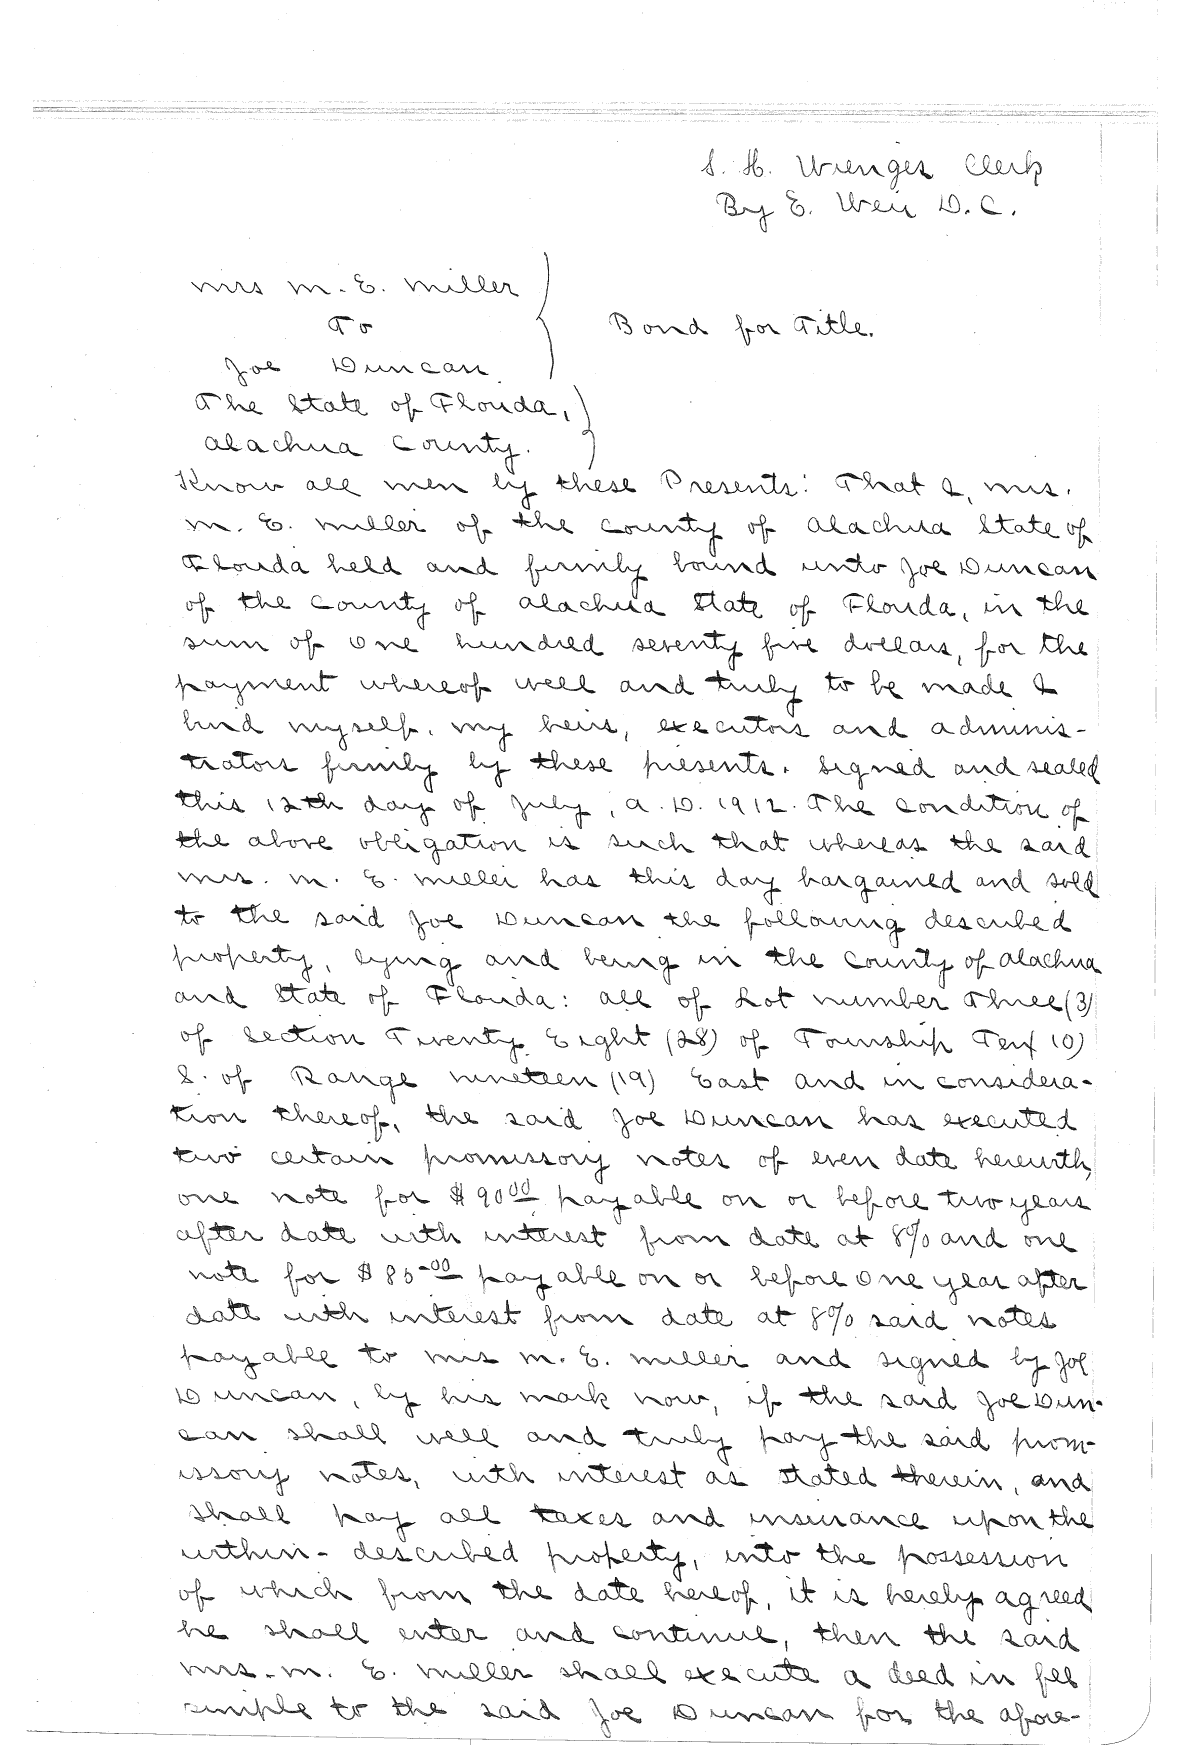 S. H. Wienges Clerk
By E. Weir D.C.
Mrs M. E. Miller
To
Bond for Title.
Joe Duncan
The State of Florida,
Alachua County.
Know all men by these Presents: That I, Mrs.
M. E. Miller of the County of Alachua State of
Florida held and firmly bound unto Joe Duncan
of the County of Alachua State of Florida, in the
sum of One hundred seventy five dollars, for the
payment whereof well and truly to be made I
bind myself, my heirs, executors and adminis-
trators firmly by these presents. Signed and sealed
this 12th day of July, A.D. 1912. The condition of
the above obligation is such that whereas the said
Mrs. M. E. Miller has this day bargained and sold
to the said Joe Duncan the following described
property, lying and being in the County of Alachua
and State of Florida: all of Lot number Three (3)
of Section Twenty Eight (28) of Township Ten (10)
S. of Range nineteen (19) East and in considera-
tion thereof, the said Joe Duncan has executed
two certain promissory notes of even date herewith,
one note for $90.00 payable on or before two years
after date with interest from date at 8% and one
note for $85.00 payable on or before one year after
date with interest from date at 8% said notes
payable to Mrs M. E. Miller and signed by Joe
Duncan, by his mark now, if the said Joe Dun-
can shall well and truly pay the said prom-
issory notes, with interest as stated therein, and
shall pay all taxes and insurance upon the
within-described property, into the possession
of which from the date hereof, it is hereby agreed
he shall enter and continue, then the said
Mrs. M. E. Miller shall execute a deed in fee
simple to the said Joe Duncan for the afore-